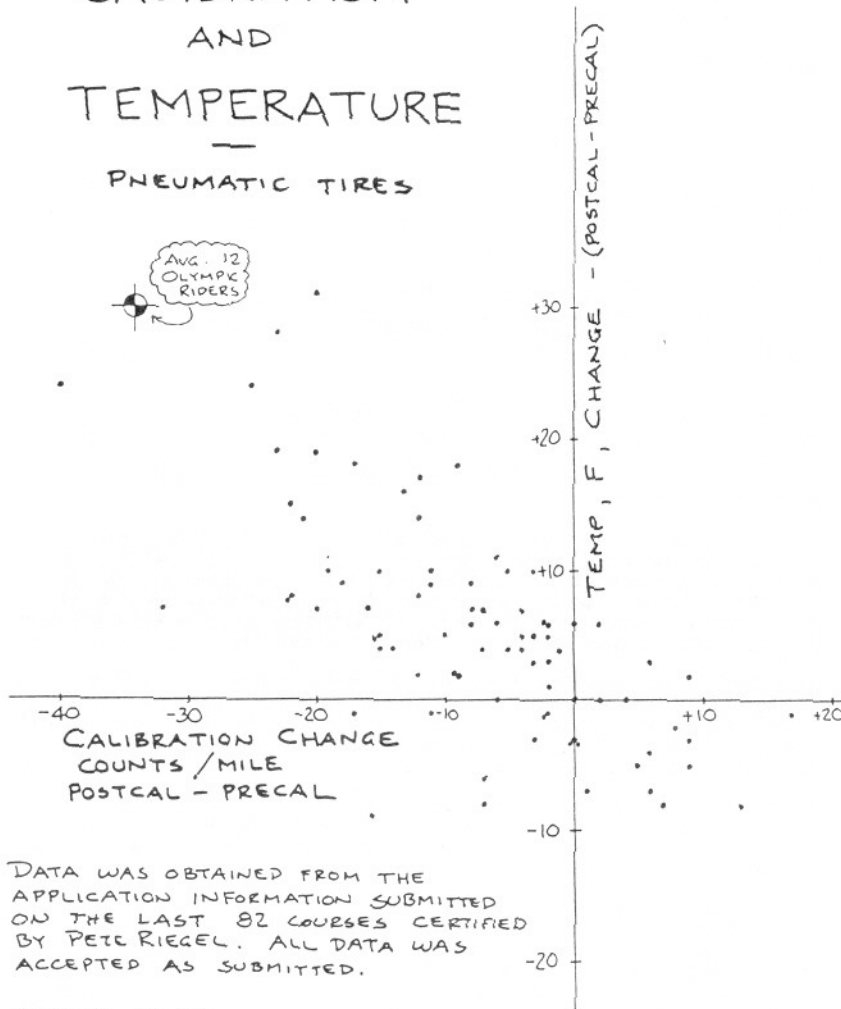 AND
TEMPERATURE
PNEUMATIC TIRES
AVG. 12
OLYMPIC
RIDERS
TEMP, F, CHANGE - (POSTCAL - PRECAL)
+30
+20
+10
-40
-30
-20
-10
+10
+20
CALIBRATION CHANGE
COUNTS/MILE
POSTCAL - PRECAL
-10
-20
DATA WAS OBTAINED FROM THE
APPLICATION INFORMATION SUBMITTED
ON THE LAST 82 COURSES CERTIFIED
BY PETE RIEGEL. ALL DATA WAS
ACCEPTED AS SUBMITTED.